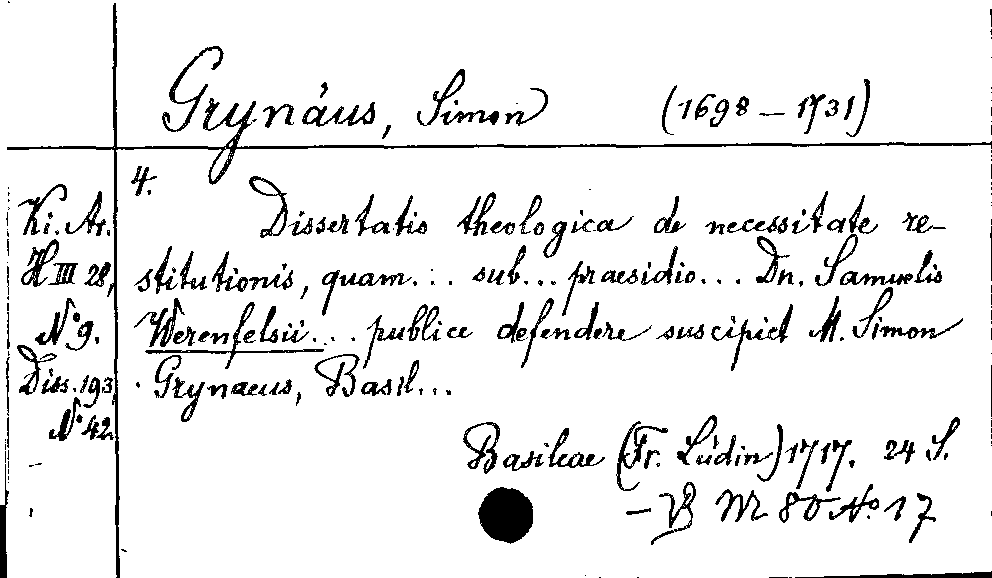 Grynäus, Simon (1698 – 1731)
4.
Ki. Ar.
H III 28,
No 9.
Diss. 193
No 42
Dissertatio theologica de necessitate re-
stitutionis, quam... sub... praesidio... Dn. Samuelis
Werenfelsii.... publice defendere suscipiet M. Simon
Grynaeus, Basil...
Basileae (Fr. Lüdin) 1717. 24 S.
No 17